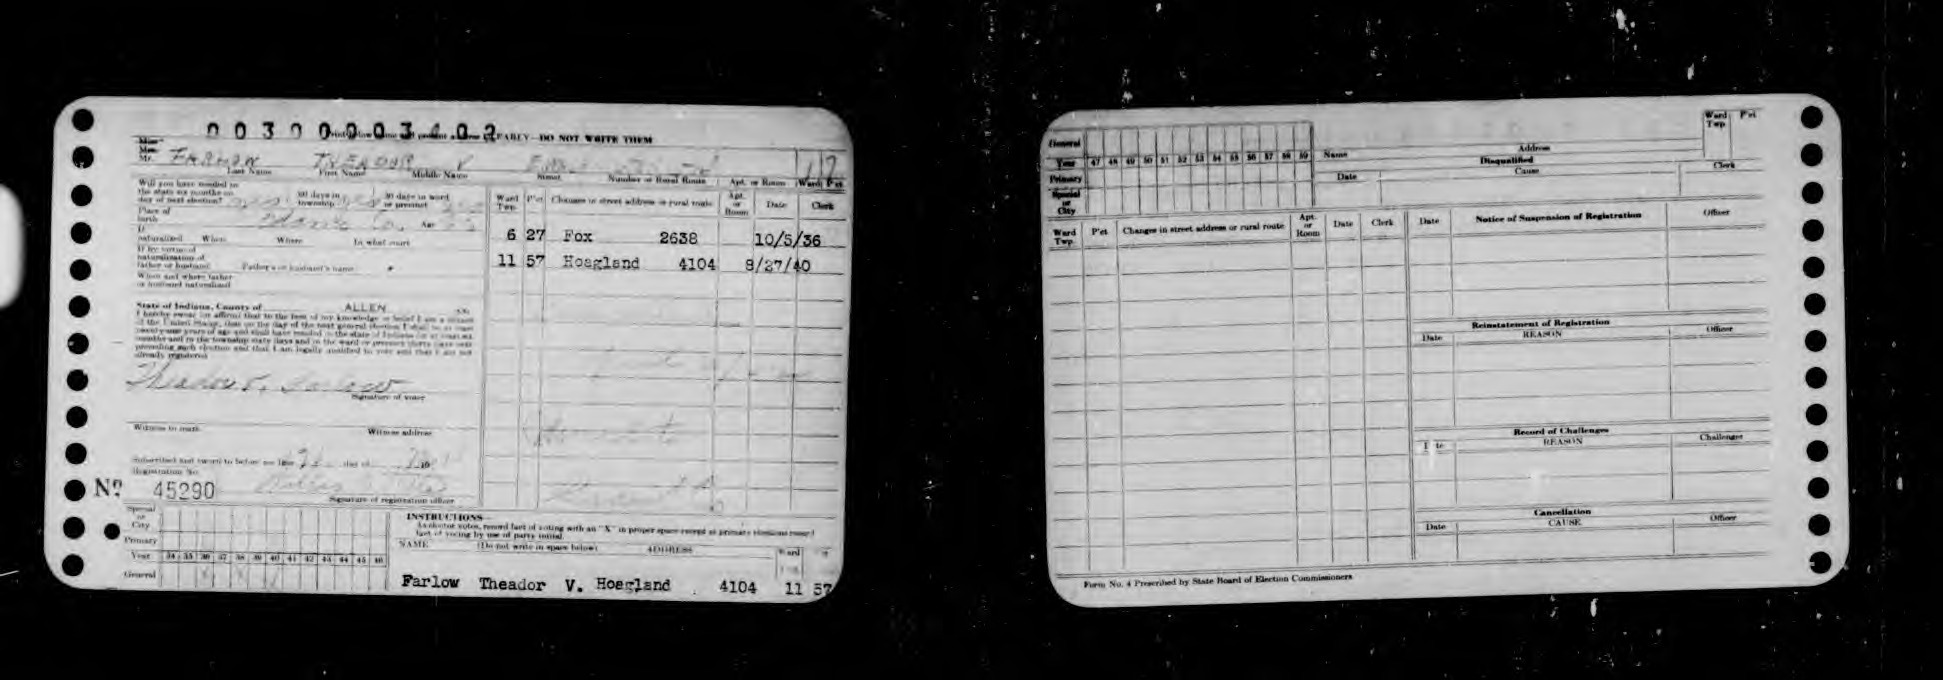 003000003402
PARTY—DO NOT WRITE THEM
Miss
Mrs.
Mr. FARLOW THEADOR V
Last Name First Name Middle Name Street Number or Rural Route Apt. or Room Ward P'ct
Will you have resided in
the state six months on
day of next election? yes 60 days in township yes 30 days in ward or precinct
Place of
birth Adams Co. Age
If
naturalized When Where In what court
If by virtue of
naturalization of
father or husband Father's or husband's name
When and where father
or husband naturalized
State of Indiana, County of ALLEN SS:
I hereby swear (or affirm) that to the best of my knowledge or belief I am a citizen
of the United States, that on the day of the next general election I shall be at least
twenty-one years of age and shall have resided in the state of Indiana for at least six
months and in the township sixty days and in the ward or precinct thirty days next
preceding such election and that I am legally qualified to vote and that I am not
already registered
Theador V. Farlow
Signature of voter
Witness to mark Witness address
Subscribed and sworn to before me this day of 19
Registration No.
Nº 45290
Signature of registration officer
Ward Twp. P'ct Changes in street address or rural route Apt. or Room Date Clerk
6 27 Fox 2638 10/5/36
11 57 Hoagland 4104 8/27/40
Special
or
City
Primary
Year 34 35 36 37 38 39 40 41 42 43 44 45 46
General X X
INSTRUCTIONS—
As elector votes, record fact of voting with an "X" in proper space except at primary elections record
fact of voting by use of party initial.
NAME (Do not write in space below) ADDRESS Ward
Farlow Theador V. Hoagland 4104 11 57
General
Year 47 48 49 50 51 52 53 54 55 56 57 58 59
Primary
Special
or
City
Name Address Ward Twp. P'ct
Disqualified
Date Cause Clerk
Ward Twp. P'ct Changes in street address or rural route Apt. or Room Date Clerk
Date Notice of Suspension of Registration Officer
Reinstatement of Registration
Date REASON Officer
Record of Challenges
REASON Challenger
Cancellation
Date CAUSE Officer
Form No. 4 Prescribed by State Board of Election Commissioners